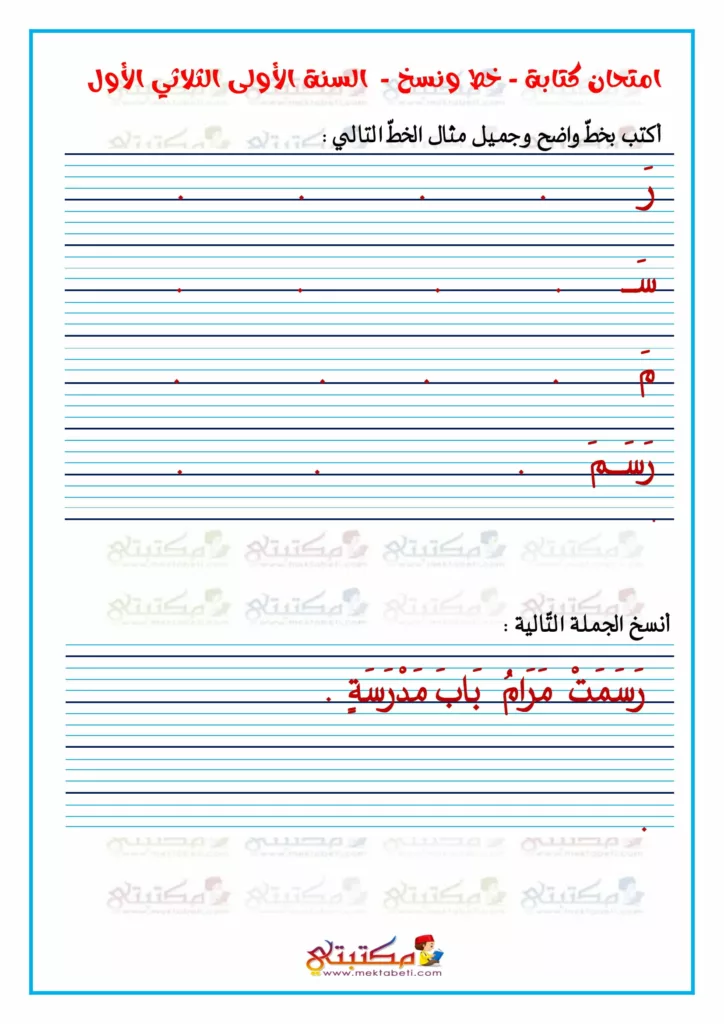 امتحان كتابة - خط ونسخ - السنة الأولى الثلاثي الأول
أكتب بخطّ واضح وجميل مثال الخطّ التالي :
رَ . . . .
سَـ . . . .
مَ . . . .
رَسَـمَ . . .
.
أنسخ الجملة التّالية :
رَسَمَتْ مَرَامُ بَابَ مَدْرَسَةٍ .
.
مكتبتي
www.mektabeti.com